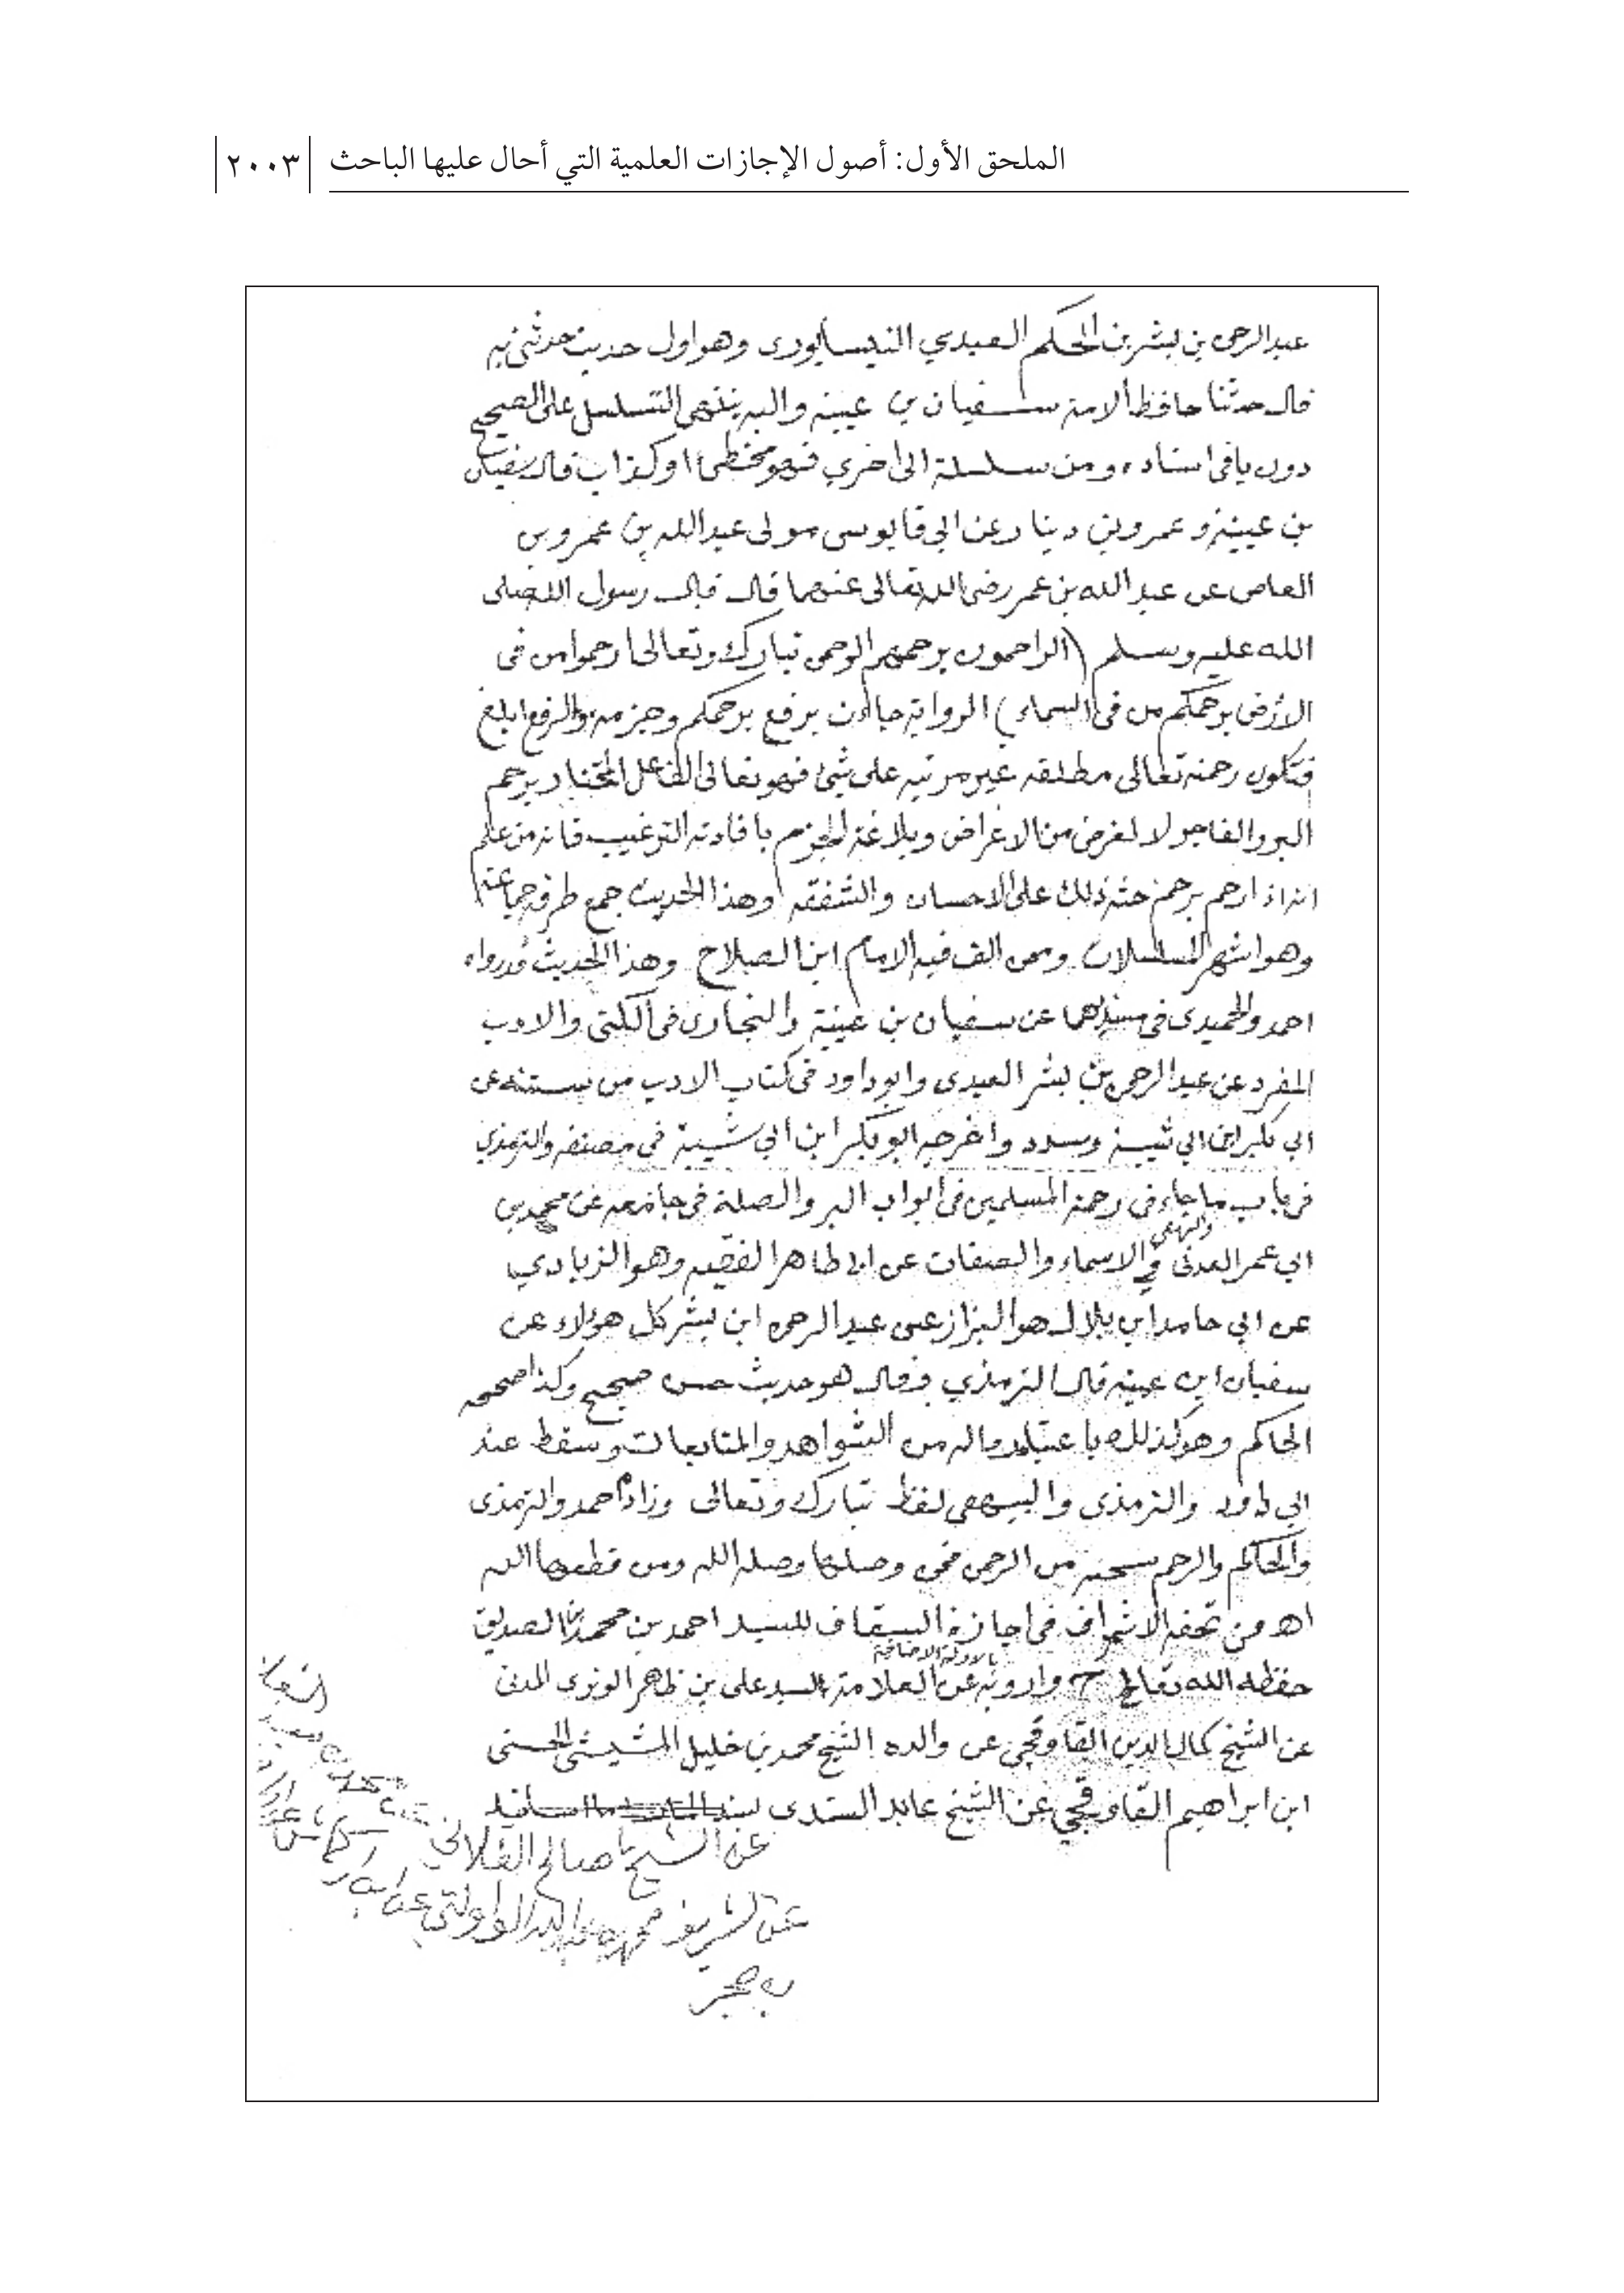 الملحق الأول: أصول الإجازات العلمية التي أحال عليها الباحث ٢٠٠٣
عبد الرحمن بن بشر بن الحكم العبدي النيسابوري وهو اول حديث حدثني به
قال حدثنا حافظ الامة سفيان بن عيينة واليه ينتهى التسلسل على الصحيح
دون باقى اسناده ومن سلسلة الى اخري فهو مخطئ او كذاب قال سفيان
بن عيينة وعمرو بن دينار عن ابي قابوس مولى عبد الله بن عمرو بن
العاص عن عبد الله بن عمر رضى الله تعالى عنهما قال قال رسول الله صلى
الله عليه وسلم (الراحمون يرحمهم الرحمن تبارك وتعالى ارحموا من فى
الارض يرحمكم من فى السماء) الرواية جاءت برفع يرحمكم وجزمه والرفع ابلغ
فتكون رحمته تعالى مطلقه غير مرتبه على شئ فهو تعالى الفاعل المختار يرحم
البر والفاجر لا لغرض من الاغراض وبلاغة الجزم بافادته الترغيب فانه من علم
انه اذا رحم يرحم حثه ذلك على الاحسان والشفقه وهذا الحديث جمع طرقه جماعة
وهو اشهر المسلسلات وممن الف فيه الامام ابن الصلاح وهذا الحديث قد رواه
احمد والحميدى فى مسنديهما عن سفيان بن عيينة والبخارى فى الكنى والادب
المفرد عن عبد الرحمن بن بشر العبدى وابو داود فى كتاب الادب من سننه عن
ابي بكر ابن ابي شيبة ومسدد واخرجه ابو بكر ابن ابي شيبة فى مصنفه والترمذي
فى باب ما جاء فى رحمة المسلمين فى ابواب البر والصلة فى جامعه عن محمد بن
ابي عمر العدنى والبيهقى في الاسماء والصفات عن ابى طاهر الفقيه وهو الزيادي
عن ابي حامد ابن بلال هو البزاز عن عبد الرحمن ابن بشر كل هؤلاء عن
سفيان ابن عيينه قال الترمذي وقال هو حديث حسن صحيح وكذا صححه
الحاكم وهو كذلك باعتبار ماله من الشواهد والمتابعات وسقط عند
ابي داود والترمذى والبيهقى لفظ تبارك وتعالى وزاد احمد والترمذى
والحاكم والرحم شجنة من الرحمن فمن وصلها وصله الله ومن قطعها الله
اهـ من تحفه الاشراف فى اجازة السقاف للسيد احمد بن محمد بن الصديق
حفظه الله تعالى ح وارويه عن بالاولية الاضافية العلامة السيد على بن ظاهر الوترى المدنى
عن الشيخ كمال الدين القاوقجي عن والده الشيخ محمد بن خليل المشيشى الحسنى
ابن ابراهيم القاوقجي عن الشيخ عابد السندى
عن الشيخ صالح الفلاني
عن الشريف محمد بن عبد الله الولاتي عن ابن اركماش عن
بن حجر